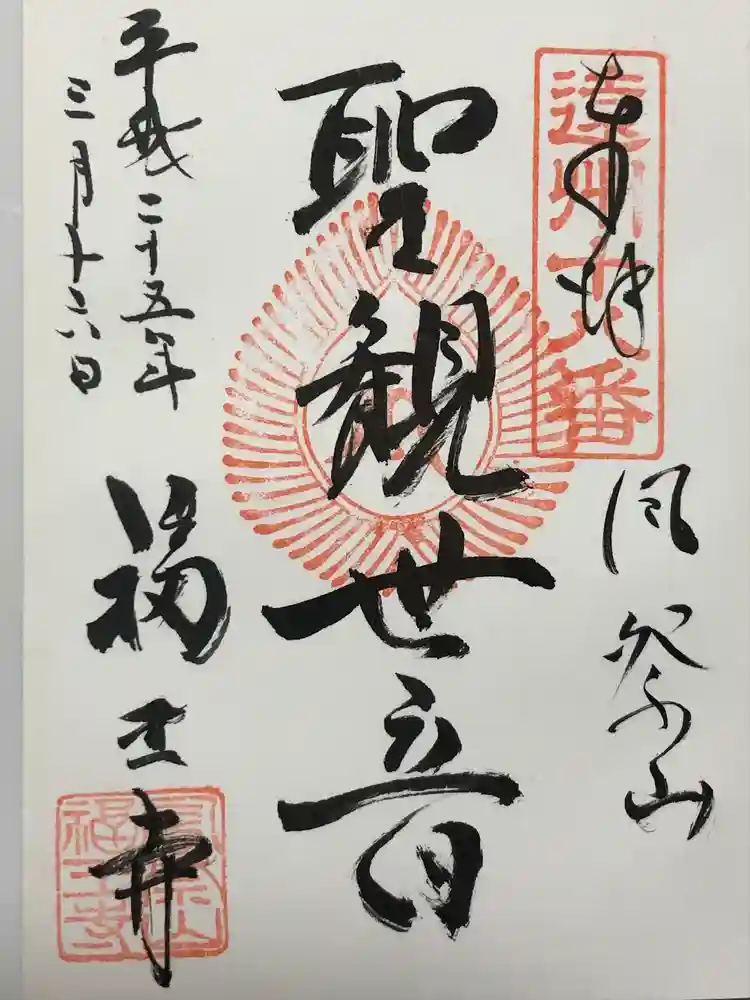 奉拝
遠州十番
風祭山
聖観世音
平成二十五年
三月十六日
福王寺
風祭山
福王寺